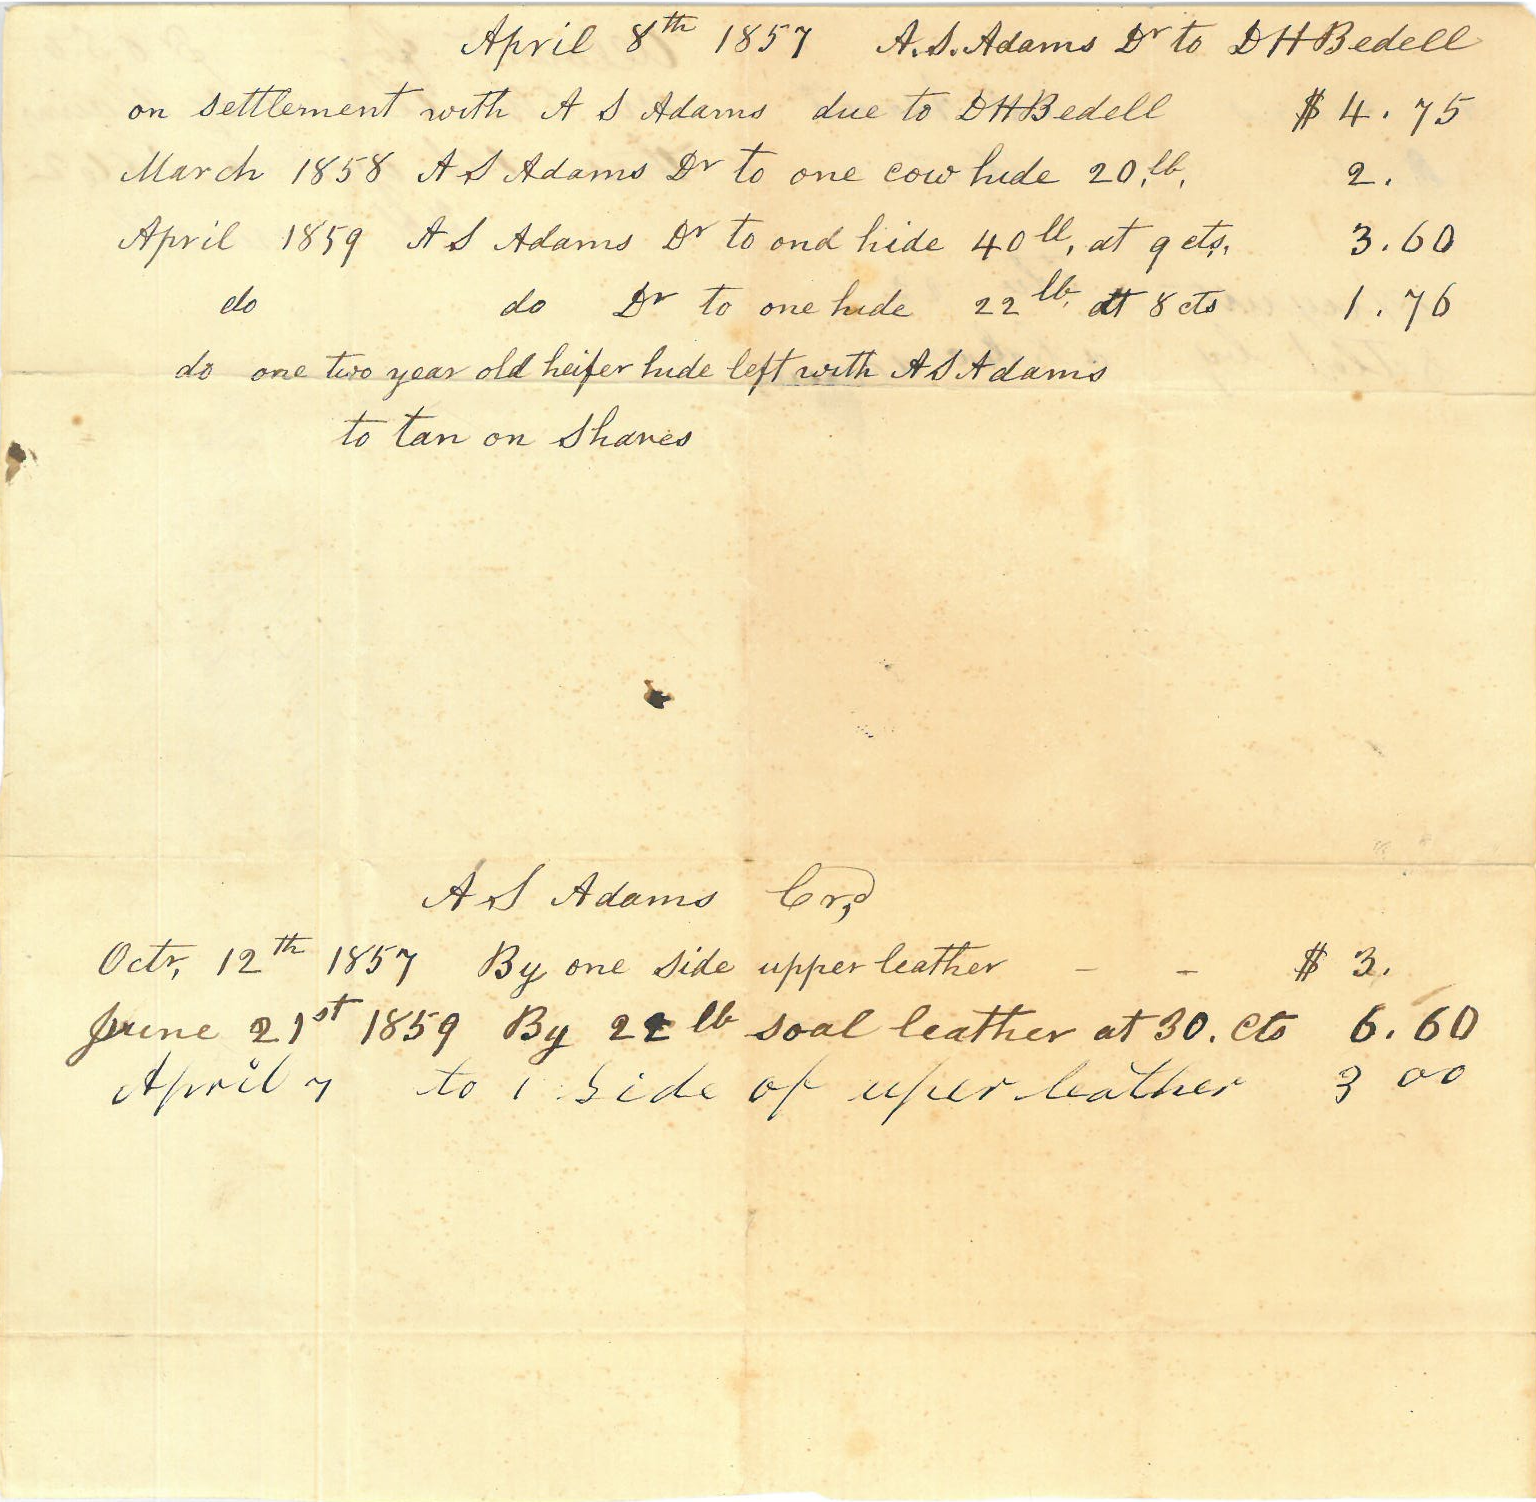 April 8th 1857 A.S. Adams Dr to D H Bedell
on settlement with A S Adams due to D H Bedell $ 4.75
March 1858 A S Adams Dr to one cow hide 20, lb, 2.
April 1859 A S Adams Dr to ond hide 40 ll, at 9 cts, 3.60
do do Dr to one hide 22 lb, at 8 cts 1.76
do one two year old heifer hide left with A S Adams
to tan on Shares
A S Adams Cr,
Octr, 12th 1857 By one side upper leather - - $ 3.
June 21st 1859 By 22 lb soal leather at 30. cts 6.60
April 7 to 1 Side of uper leather 3 00